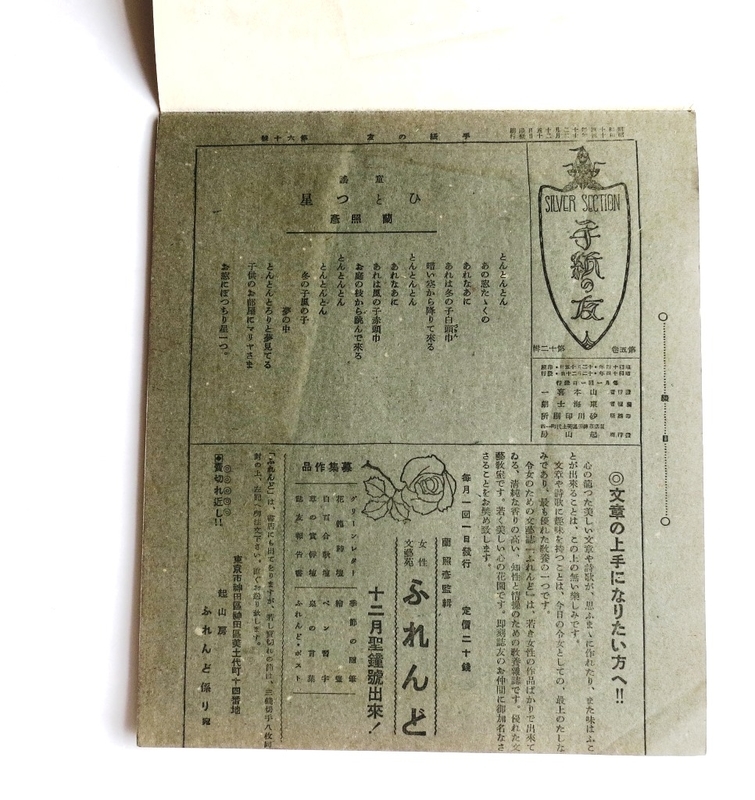 手紙の友
第六十號
SILVER SECTION
手紙の友
第五卷
第十二輯
童謠
ひとつ星
蘭照彥
とんとんとん
あの窓たゝくの
あれなあに
あれは冬の子白頭巾
暗い空から降りて來る
とんとんとん
あれなあに
あれは風の子赤頭巾
お庭の枝から跳んで來る
とんとんとん
とんとんとん
冬の子風の子
夢の中
とんとんとろりと夢見てる
子供のお部屋にマリヤさま
お窓にぽつちり星一つ。
◎文章の上手になりたい方へ!!
心の籠つた美しい文章や詩歌が、思ふまゝに作れたり、また味はふこ
とが出來ることは、この上の無い樂しみです。
文章や詩歌に趣味を持つことは、今日の令女としての、最上のたしな
みであり、最も優れた敎養の一つです。
令女のための文藝誌『ふれんど』は、若き女性の作品ばかりで出來て
ゐる、淸純な香りの高い、知性と情操のための敎養雜誌です。優れた文
藝敎室です。若く美しい心の花園です。即刻誌友のお仲間に御加名なさ
さることをお奬め致します。
每月一回一日發行 定價二十錢
蘭照彥監輯
女性
文藝苑
ふれんど
十二月聖鐘號出來!
募集作品
グリーンレター
季節の隨筆
ペン習字
ふれんど・ポスト
『ふれんど』は、書店にも出てをりますが、若し賣切れの節は、三錢切手八枚同
封の上、左記へ御注文下さい。直ぐお送り致します。
東京市神田區神田區美土代町十四番地
起山房
ふれんど係り宛
◆賣切れ近し!!